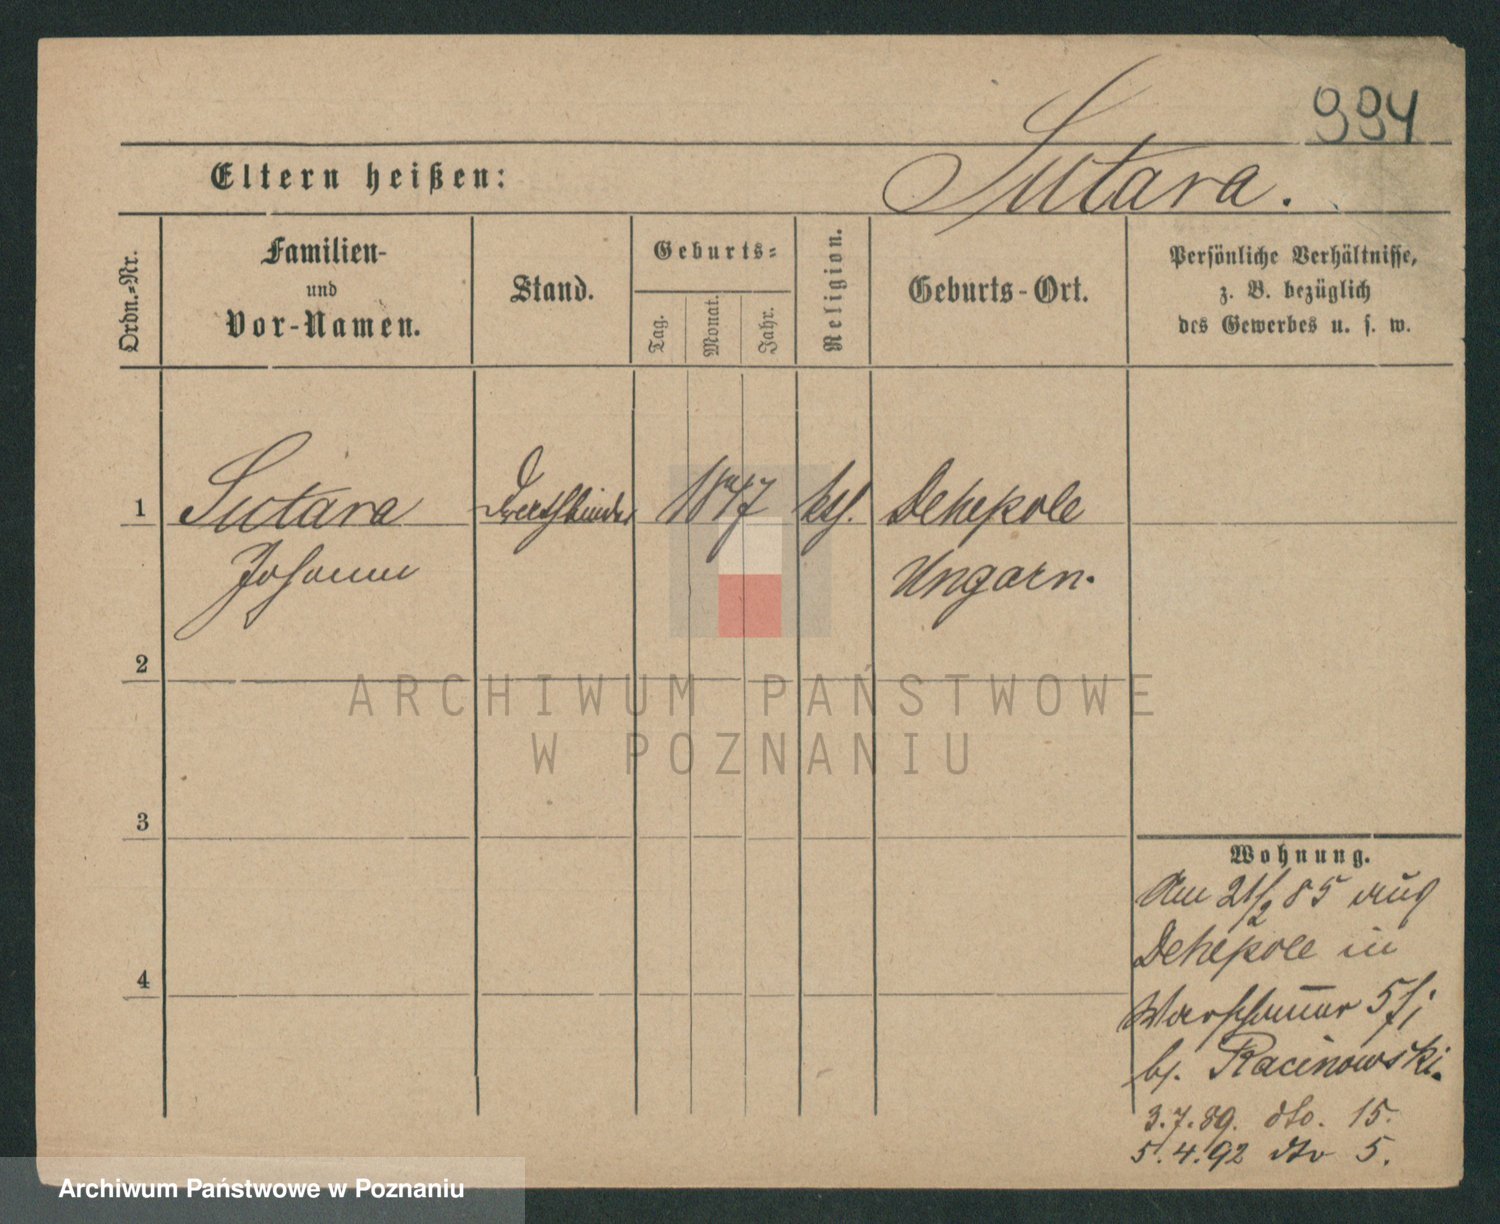 994
Eltern heißen:
Sutara.
Ordn.-Nr.
Familien-
und
Vor-Namen.
Stand.
Geburts-
Tag.
Monat.
Jahr.
Religion.
Geburts-Ort.
Persönliche Verhältnisse,
z. B. bezüglich
des Gewerbes u. s. w.
1
Sutara
Drathbinder
1847
kth.
Dehepole
Johann
Ungarn.
2
ARCHIWUM PAŃSTWOWE
W POZNANIU
3
Wohnung.
Am 21/2 85 aus
Dehepole in
4
Warschauer 5
b/. Racinowski.
3.7.89. dto. 15.
5.4.92 dto 5.
Archiwum Państwowe w Poznaniu